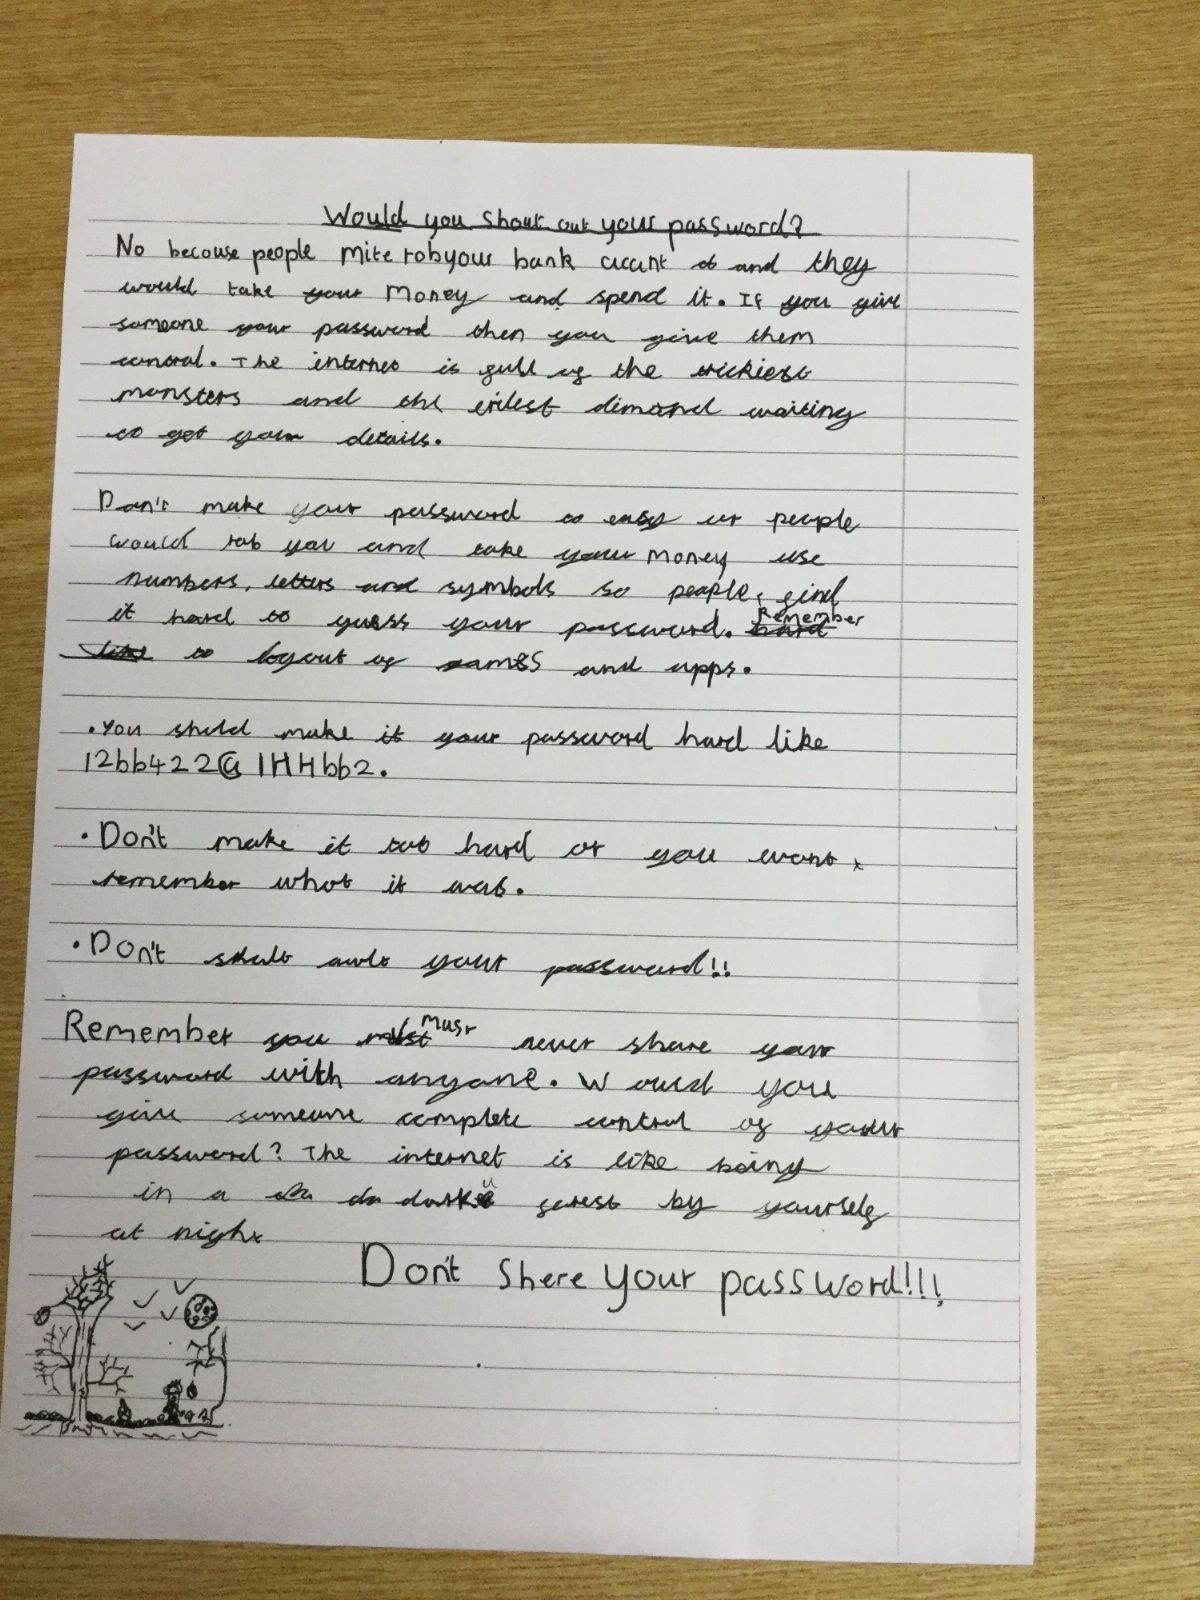 Would you shout out your password?
No because people mite rob your bank acunt and they
would take your money and spend it. If you give
someone your password then you give them
control. The internet is full of the trickiest
monsters and the evilest dimond waiting
to get your details.
Don't make your password to easy or people
would rob you and take your money use
numbers, letters and symbols so people find
it hard to guess your password. Remember
to logout of games and apps.
• You shold make it your password hard like
12bb422@1HHbb2.
• Don't make it too hard or you wont
remember what it was.
• Don't shult awt your password!!
Remember you must never share your
password with anyone. Would you
give someone complete control of your
password? The internet is like being
in a dark forest by yourself
at night
Don't shere your password!!!